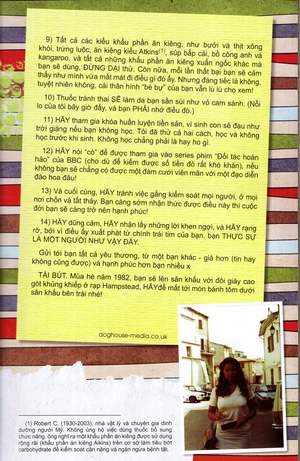 9) Tất cả các kiểu khẩu phần ăn kiêng, như bưởi và thịt xông
khói, trứng luộc, ăn kiêng kiểu Atkins(1), súp bắp cải, bồ công anh và
kangaroo, và tất cả những khẩu phần ăn kiêng xuẩn ngốc khác mà
bạn sẽ dùng, ĐỪNG DẠI thử. Còn nữa, mỗi lần thất bại bạn sẽ cảm
thấy như mình vừa mất mát đi điều gì đó ấy. Nhưng đáng tiếc là không,
tuyệt nhiên không, cái thân hình "bé bự" của bạn vẫn lù lù cho xem!
10) Thuốc tránh thai SẼ làm da bạn sần sùi như vỏ cam sành. (Nỗi
lo của tôi bây giờ đấy, và bạn PHẢI nhớ điều đó.)
11) HÃY tham gia khóa huấn luyện tiền sản, vì sinh con sẽ đau như
trời giáng nếu bạn không học. Tôi đã thử cả hai cách, học và không
học trước khi sinh. Không học chẳng phải là hay ho gì.
12) HÃY nói "có" để được tham gia vào series phim "Đối tác hoàn
hảo" của BBC (cho dù để kiếm được số tiền đó rất khó khăn), nếu
không bạn sẽ chẳng có được một đám cưới viên mãn với một đạo diễn
đào hoa đâu!
13) Và cuối cùng, HÃY tránh việc gắng kiểm soát mọi người, ở mọi
nơi chốn và tất thảy. Bạn càng sớm nhận thức được điều này thì cuộc
đời bạn sẽ càng trở nên hạnh phúc!
14) HÃY dũng cảm, HÃY nhận lấy những lời khen ngợi, và HÃY rạng
rỡ, bởi vì điều ấy xuất phát từ chính trái tim của bạn, bạn THỰC SỰ
LÀ MỘT NGƯỜI NHƯ VẬY ĐẤY.
Gửi tới bạn tất cả yêu thương, từ một bạn khác - già hơn (tin hay
không cũng được) và hạnh phúc hơn bạn nhiều x
TÁI BÚT. Mùa hè năm 1982, bạn sẽ lên sân khấu với đôi giày cao
gót khủng khiếp ở rạp Hampstead, HÃY để mắt tới món bánh tôm dưới
sân khấu bên trái nhé!
doghouse-media.co.uk
(1) Robert C. (1930-2003): nhà vật lý và chuyên gia dinh
dưỡng người Mỹ. Không ủng hộ việc dùng thuốc bổ sung
chức năng, ông nghĩ ra một khẩu phần ăn kiêng được sử dụng
rộng rãi (khẩu phần ăn kiêng Aikins) trên cơ sở làm tiêu bớt
carbohydrate để kiểm soát cân nặng và ngăn ngừa bệnh tật.